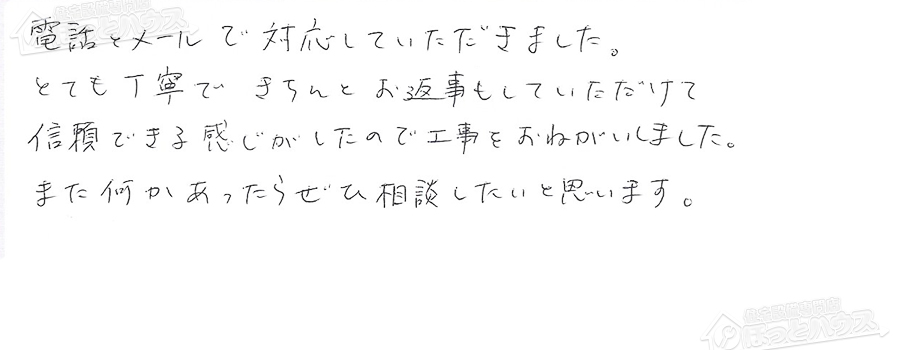 電話とメールで対応していただきました。
とても丁寧できちんとお返事もしていただけて
信頼できる感じがしたので工事をおねがいしました。
また何かあったらぜひ相談したいと思います。
住宅設備専門店
ほっとハウス